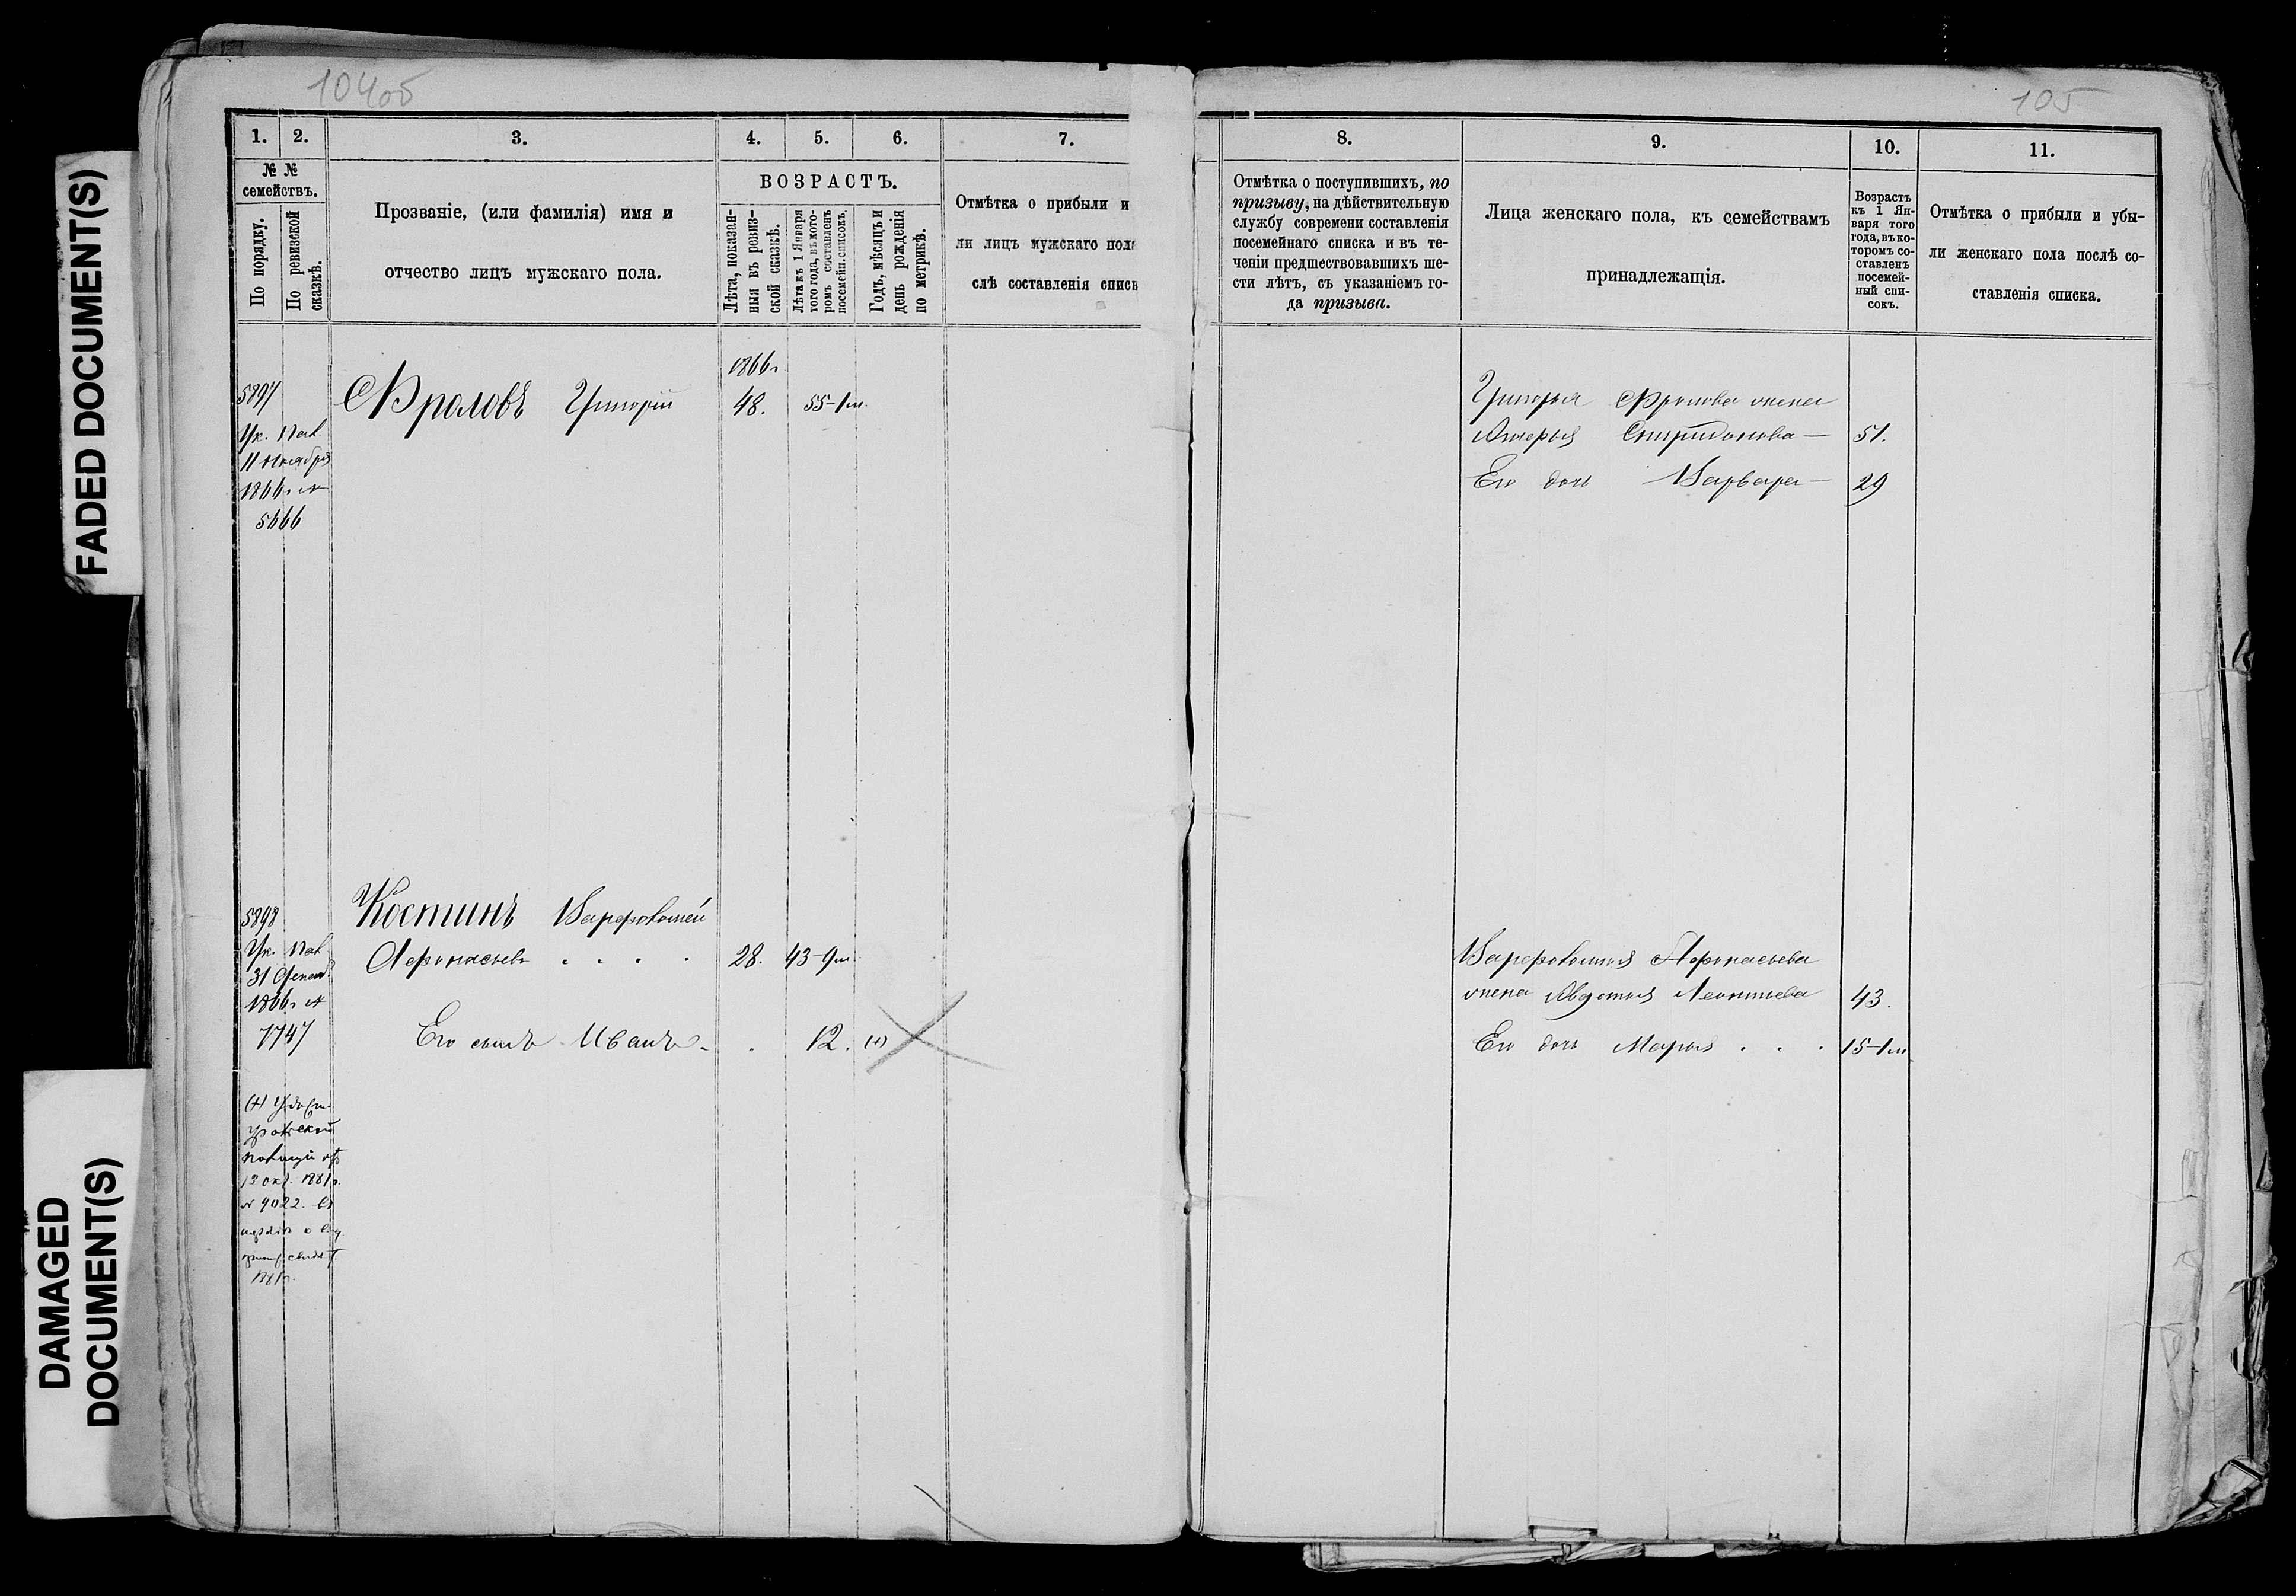 FADED DOCUMENT(S)
DAMAGED
DOCUMENT(S)
104об
1. 2. 3. 4. 5. 6. 7.
№ №
семействъ.
По порядку.
По ревизской
сказкѣ.
Прозваніе, (или фамилія) имя и
отчество лицъ мужскаго пола.
ВОЗРАСТЪ.
Лѣта, показан-
ныя въ ревиз-
ской сказкѣ.
Лѣта къ 1 Января
того года, въ кото-
ромъ составленъ
посемейн. списокъ.
Годъ, мѣсяцъ и
день рожденія
по метрикѣ.
Отмѣтка о прибыли и
ли лицъ мужскаго пол
слѣ составленія списк
1866г
5897 Фроловъ Григорій 48. 55-1м.
Ук. Пал.
11 Ноября
1866г №
5666
5898 Костинъ Варфоломей
Ук. Пал.
Афонасьевъ 28. 43-9м.
31
1866г №
1747 Его сынъ Иванъ 12. (+)
(+)
полиціи
13 окт. 1881г.
№ 9022.
1881г.
105
8. 9. 10. 11.
Отмѣтка о поступившихъ, по
призыву, на дѣйствительную
службу современи составленія
посемейнаго списка и въ те-
ченіи предшествовавшихъ ше-
сти лѣтъ, съ указаніемъ го-
да призыва.
Лица женскаго пола, къ семействамъ
принадлежащія.
Возрастъ
къ 1 Ян-
варя того
года, въ ко-
торомъ со-
ставленъ
посемей-
ный спи-
сокъ.
Отмѣтка о прибыли и убы-
ли женскаго пола послѣ со-
ставленія списка.
Григорья Фролова жена
Спиридонова — 51.
Его дочь Варвара — 29
Варфоломея Афонасьева
жена Авдотья Леонтьева 43.
Его дочь Марья 15-1м